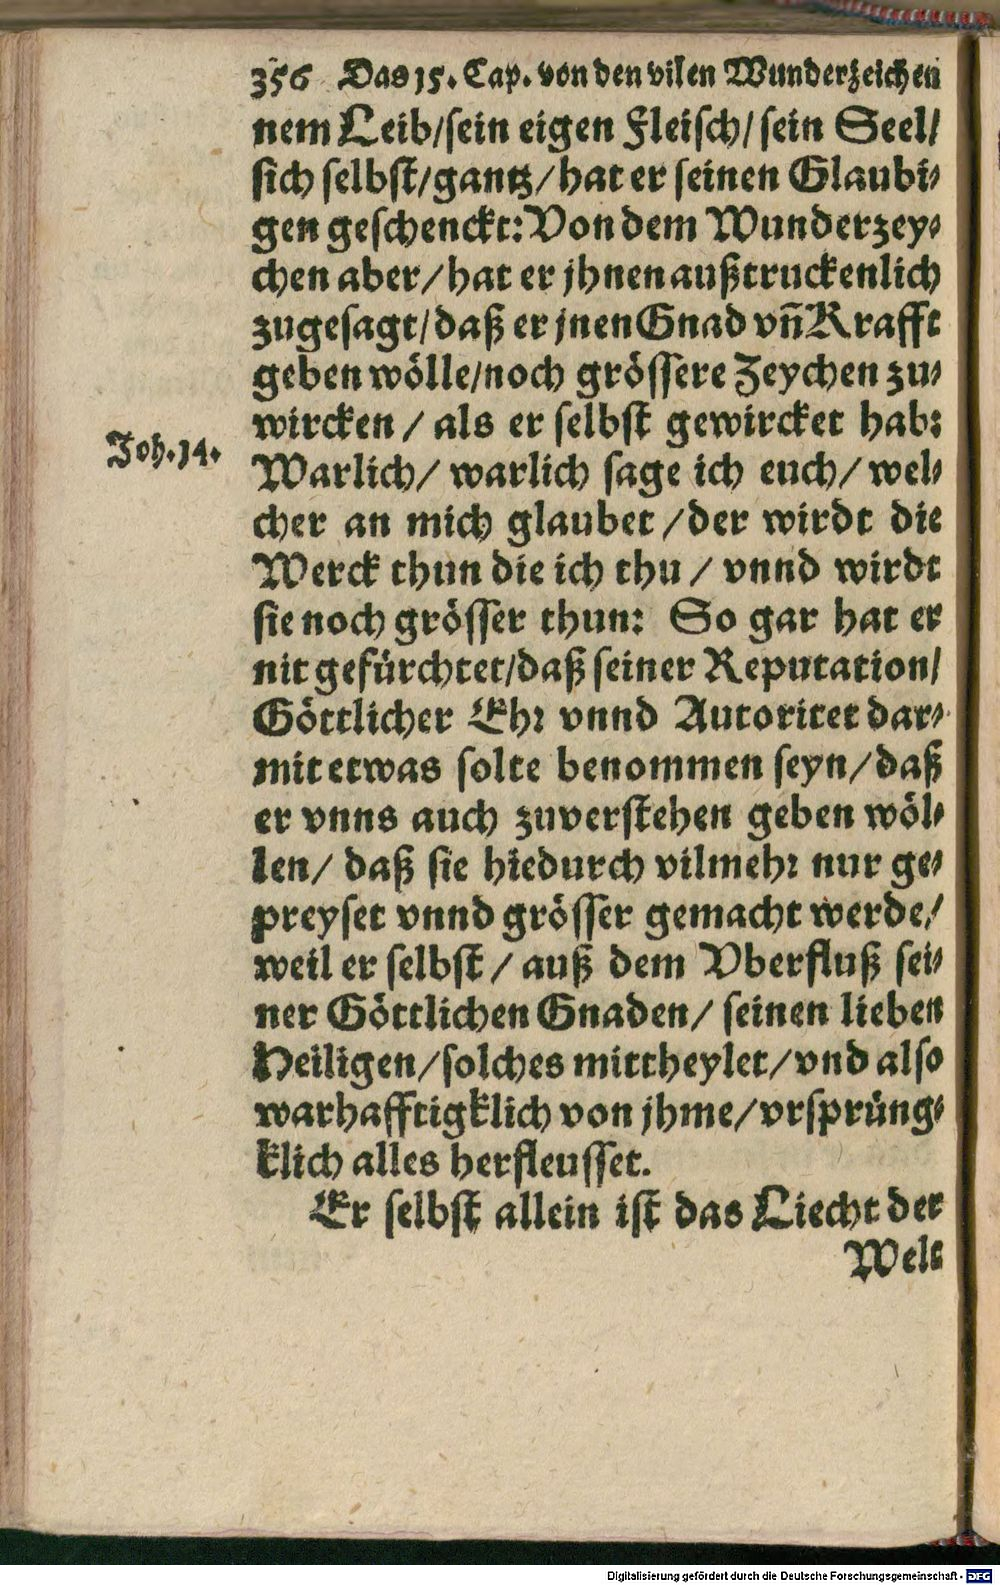 356 Das 15. Cap. von den vilen Wunderzeichen
nem Leib/sein eigen Fleisch/sein Seel/
sich selbst/gantz/hat er seinen Glaubi⸗
gen geschenckt: Von dem Wunderzey⸗
chen aber/hat er jhnen außtruckenlich
zugesagt/daß er jnen Gnad vñ Krafft
geben wölle/noch grössere Zeychen zu⸗
wircken/als er selbst gewircket hab:
Joh. 14.
Warlich/warlich sage ich euch/wel⸗
cher an mich glaubet/der wirdt die
Werck thun die ich thu/vnnd wirdt
sie noch grösser thun: So gar hat er
nit gefürchtet/daß seiner Reputation/
Göttlicher Ehr vnnd Autoritet dar⸗
mit etwas solte benommen seyn/daß
er vnns auch zuverstehen geben wöl⸗
len/daß sie hiedurch vilmehr nur ge⸗
preyset vnnd grösser gemacht werde/
weil er selbst/auß dem Vberfluß sei⸗
ner Göttlichen Gnaden/seinen lieben
Heiligen/solches mittheylet/vnd also
warhafftigklich von jhme/vrsprüng⸗
klich alles herfleusset.
Er selbst allein ist das Liecht der
Welt
Digitalisierung gefördert durch die Deutsche Forschungsgemeinschaft - DFG